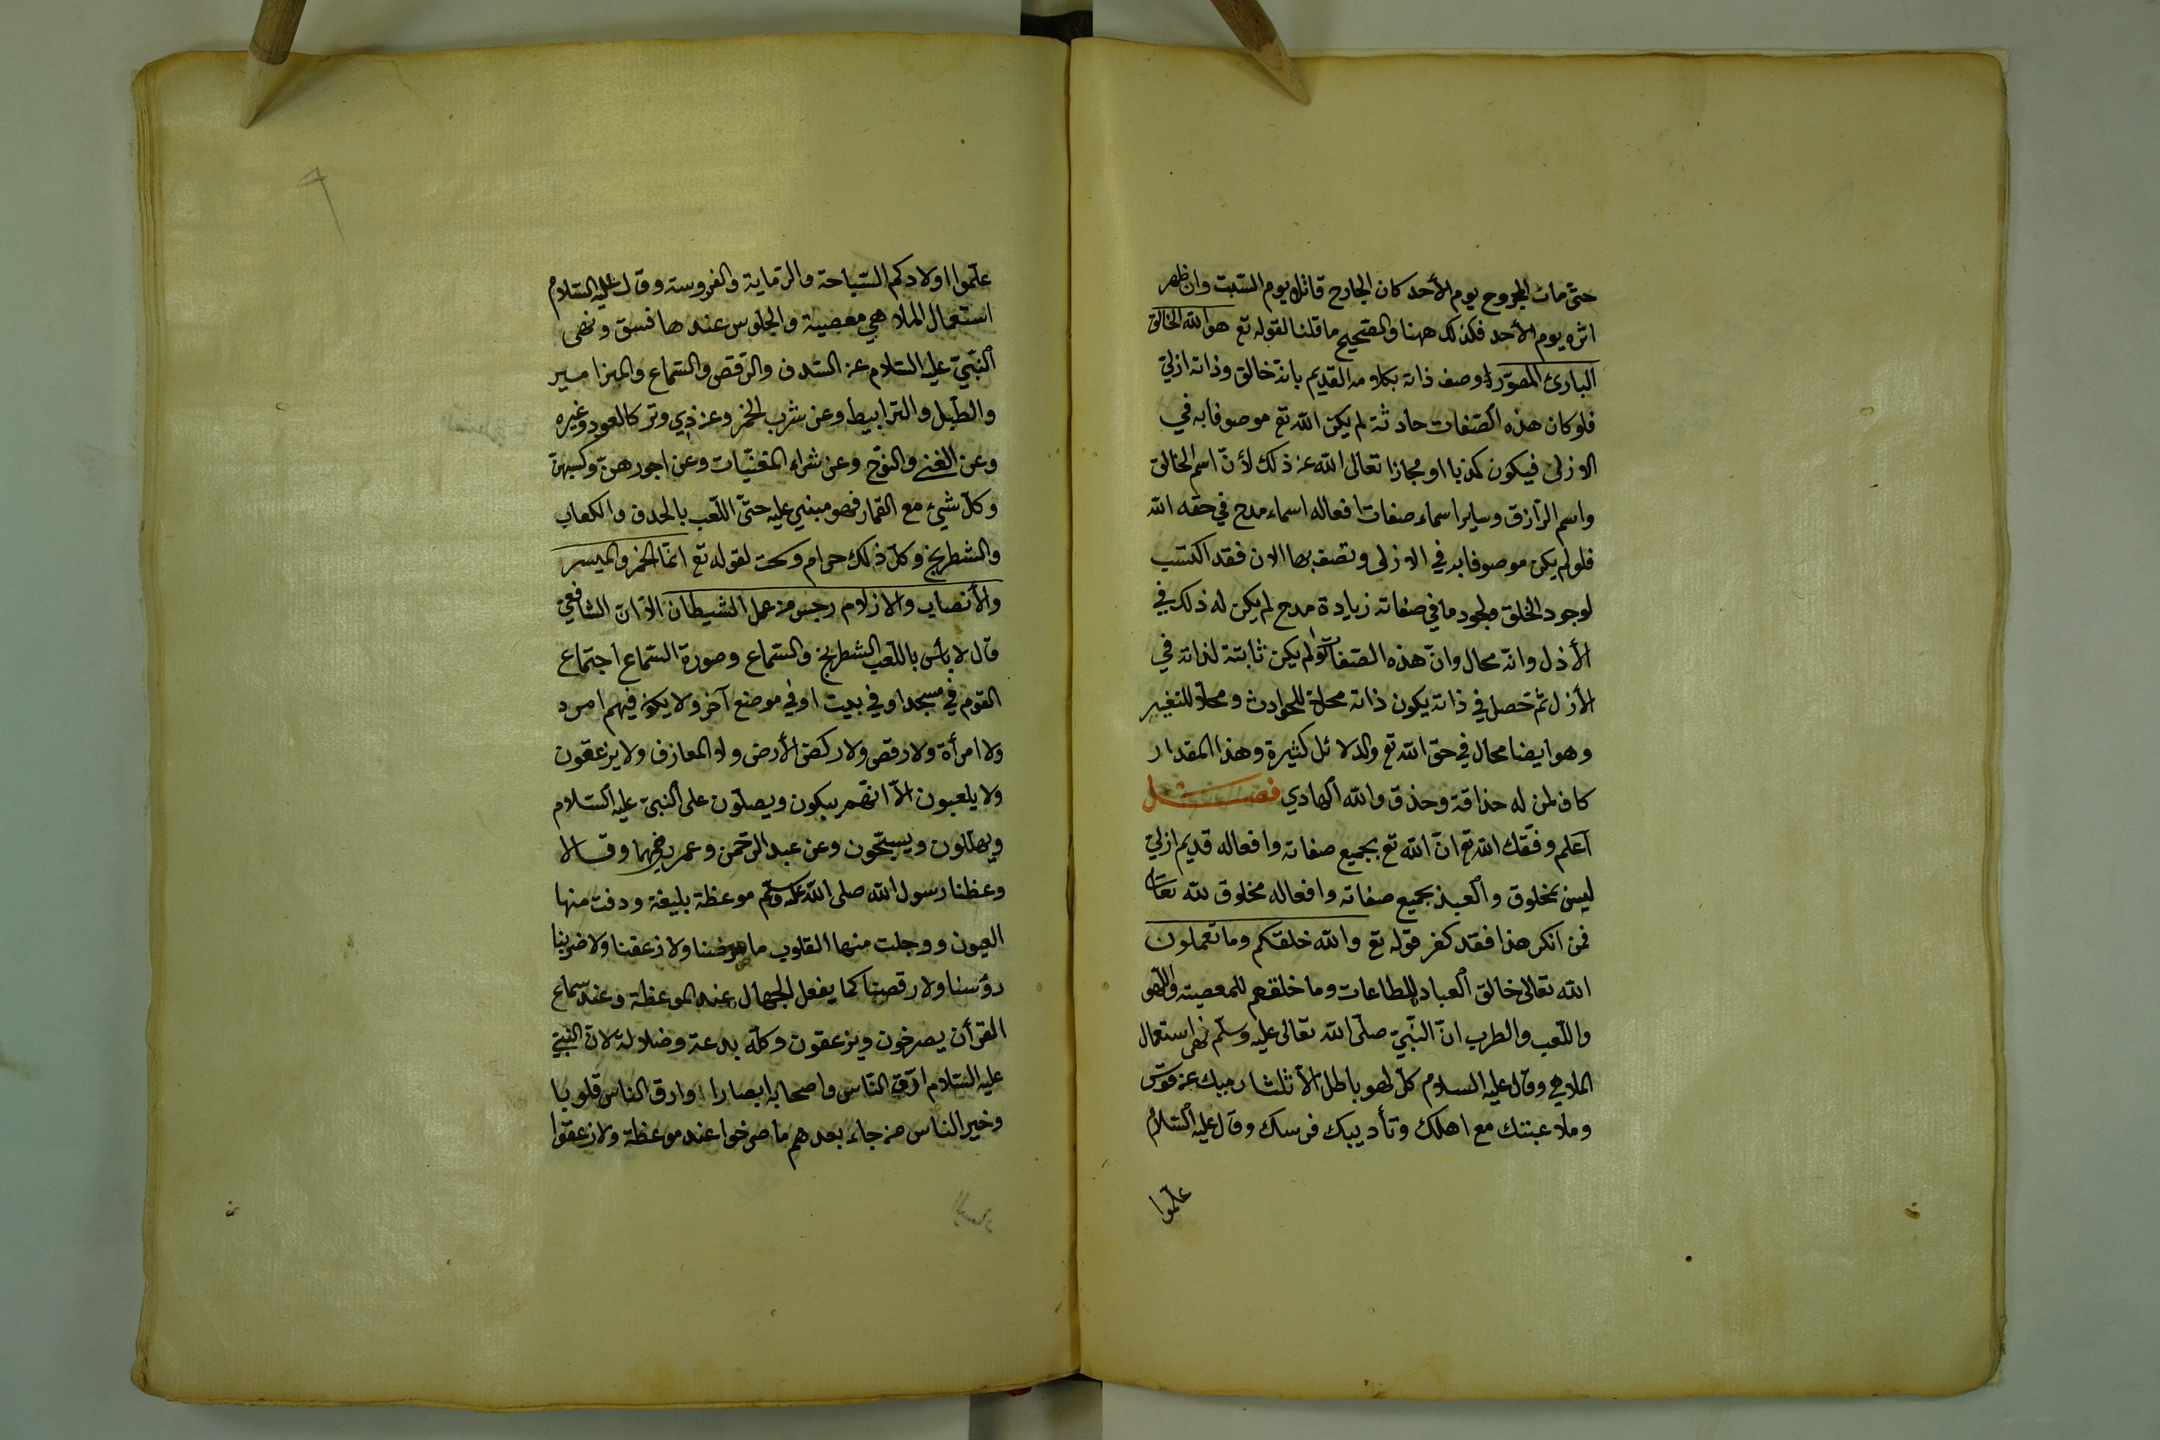 حتى مات المجروح يوم الأحد كان الجارح قاتله يوم السبت وان ظهر
اثره يوم الأحد فكذلك ههنا والصحيح ما قلنا لقوله تع هو الله الخالق
البارئ المصور وصف ذاته بكلامه القديم بانه خالق وذاته ازلي
فلو كان هذه الصفات حادثة لم يكن الله تع موصوفا به في
الازلى فيكون كذبا او مجازا تعالى الله عن ذلك لأن اسم الخالق
واسم الرازق وساير اسماء صفات افعاله اسماء مدح في حقه الله
فلو لم يكن موصوفا به في الازلى وتصف بها الان فقد اكتسب
لوجود الخلق وبجود ما في صفاته زيادة مدح لم يكن له ذلك في
الأذل وانه محال وان هذه الصفات لو لم يكن ثابتة لذاته في
الأزل ثم تحصل في ذاته يكون ذاته محلا للحوادث ومحلا للتغيير
وهو ايضا محال في حق الله تع والدلائل كثيرة وهذا المقدار
كاف لمن له حذاقة وحذق والله الهادي فصل
اعلم وفقك الله تع ان الله تع بجميع صفاته وافعاله قديم ازلي
ليس بمخلوق والعبد بجميع صفاته وافعاله مخلوق لله تعالى
فمن انكر هذا فقد كفر قوله تع والله خلقكم وما تعملون
الله تعالى خالق العباد للطاعات وما خلقهم للمعصية واللهو
واللعب والطرب ان النبي صلى الله تعالى عليه وسلم نهى استعمال
الملاهي وقال عليه السلام كل لهو باطل الا ثلثا رميك عن قوس
وملاعبتك مع اهلك وتأديبك فرسك وقال عليه السلام
علموا
علموا اولادكم السباحة والرماية والفروسة وقال عليه السلام
استعمال الملاهي معصية والجلوس عندها فسق ونهى
النبي عليه السلام عن الدف والرقص والسماع والمزامير
والطبل والترابيط وعن شرب الخمر وعن ذي وتر كالعود وغيره
وعن الغني والنوح وعن شراء المغنيات وعن اجورهن وكسبهن
وكل شيء مع القمار فهو مبني عليه حتى اللعب بالحدق والكعاب
والشطرنج وكل ذلك حرام وسحت لقوله تع انما الخمر والميسر
والأنصاب والازلام رجس من عمل الشيطان الا ان الشافعي
قال لا بأس باللعب الشطرنج والسماع وصورة السماع اجتماع
القوم في مسجد او في بيت او في موضع آخر ولا يكون فيهم امرد
ولا امرأة ولا رقص ولا ركض الأرض ولا المعازف ولا يزعقون
ولا يلعبون الا انهم يبكون ويصلون على النبي عليه السلام
ويهللون ويسبحون وعن عبد الرحمن وعمر رضيهما وقالا
وعظنا رسول الله صلى الله عليه وسلم موعظة بليغة ودفت منها
العيون ووجلت منها القلوب ما صرخنا ولا زعقنا ولا ضربنا
رؤسنا ولا رقصنا كما يفعل الجهال عند الموعظة وعند سماع
القرأن يصرخون ويزعقون وكله بدعة وضلالة لان النبي
عليه السلام ارق الناس واصحابه ابصارا وارق الناس قلوبا
وخير الناس من جاء بعدهم ما صرخوا عند موعظة ولا زعقوا